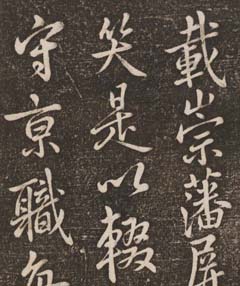 載崇藩屏
笑是以輟
守京職